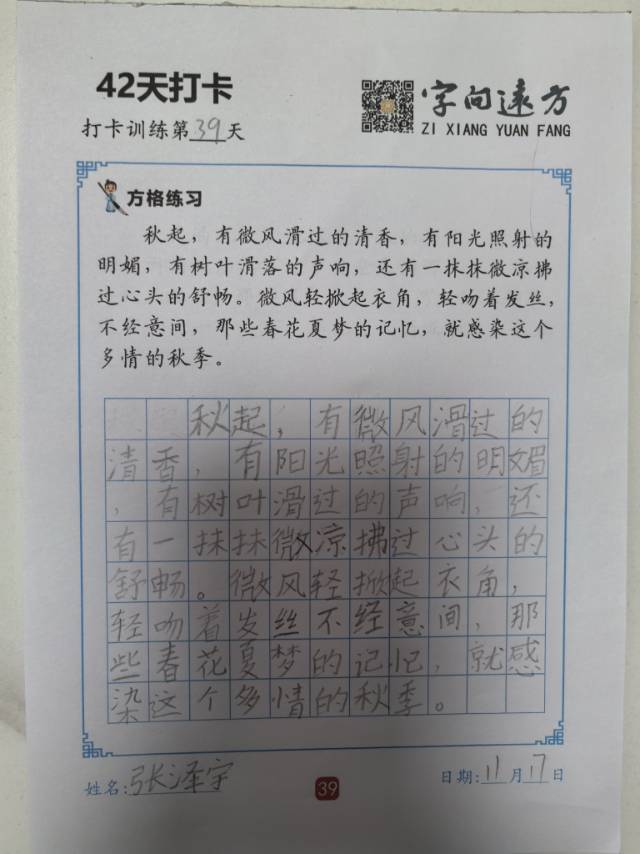 42天打卡
打卡训练第39天
字向远方
ZI XIANG YUAN FANG
方格练习
秋起，有微风滑过的清香，有阳光照射的
明媚，有树叶滑落的声响，还有一抹抹微凉拂
过心头的舒畅。微风轻掀起衣角，轻吻着发丝，
不经意间，那些春花夏梦的记忆，就感染这个
多情的秋季。
秋起，有微风滑过的
清香，有阳光照射的明媚
，有树叶滑过的声响，还
有一抹抹微凉拂过心头的
舒畅。微风轻掀起衣角，
轻吻着发丝不经意间，那
些春花夏梦的记忆，就感
染这个多情的秋季。
姓名:张泽宇
39
日期:11月17日